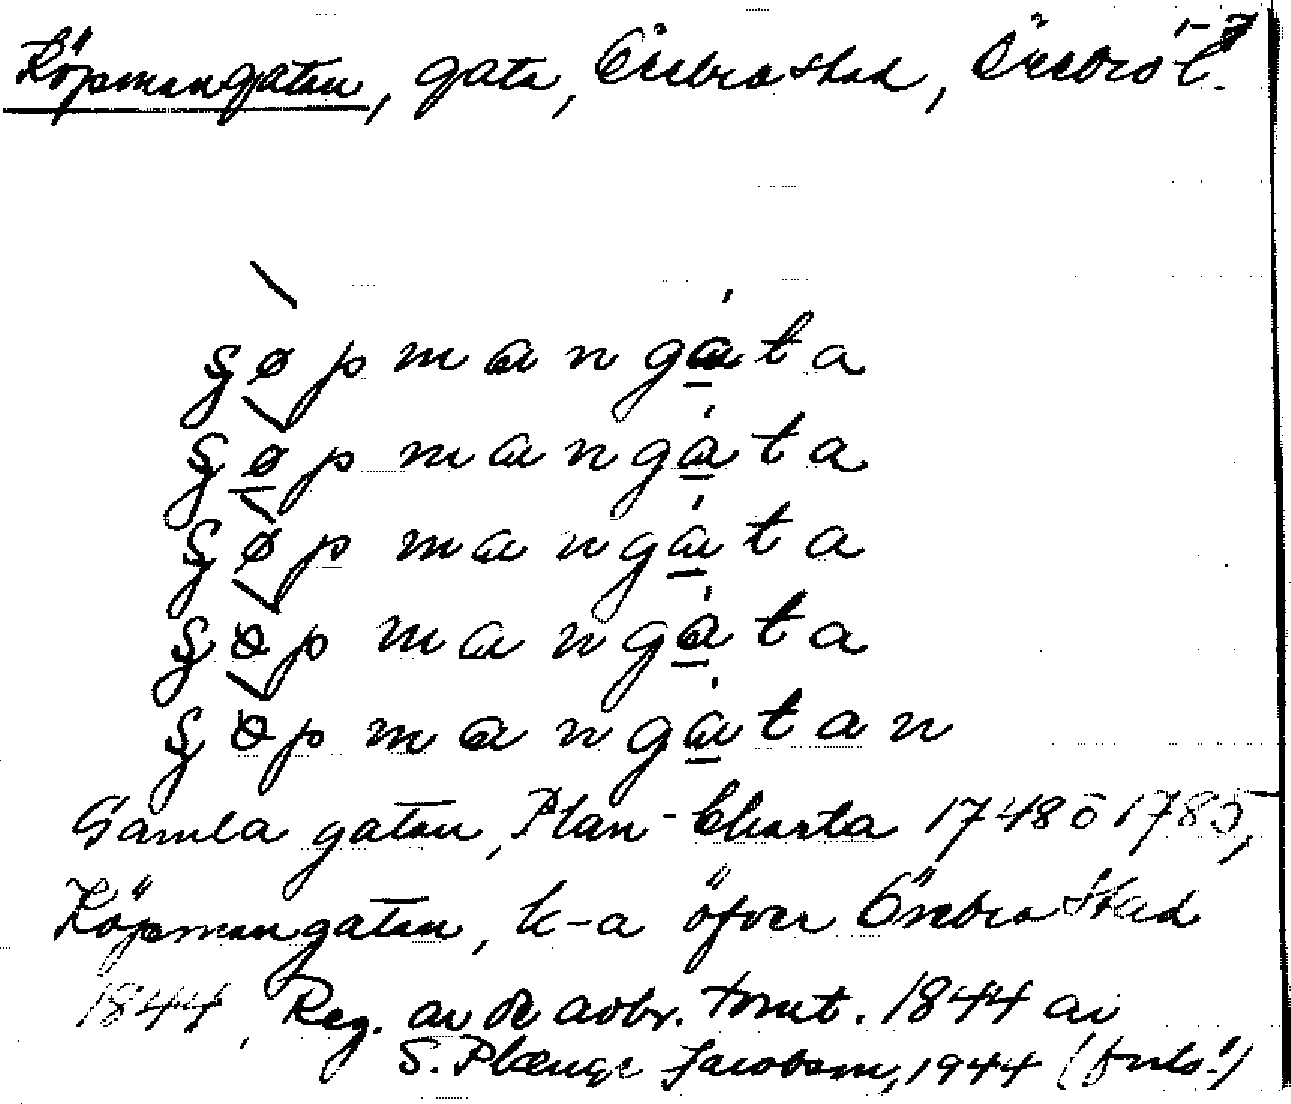 Köpmangatan, gata, Örebro stad, Örebro l.
gøpmangàta
gøpmangàta
gøpmangàta
göpmangàta
göpmangàtan
Gamla gatan, Plan-Charta 1748 o 1785,
Köpmangatan, k-a öfver Örebro stad
1844, Reg. av de avbr. tomt. 1844 av
S. Jacobson, 1944